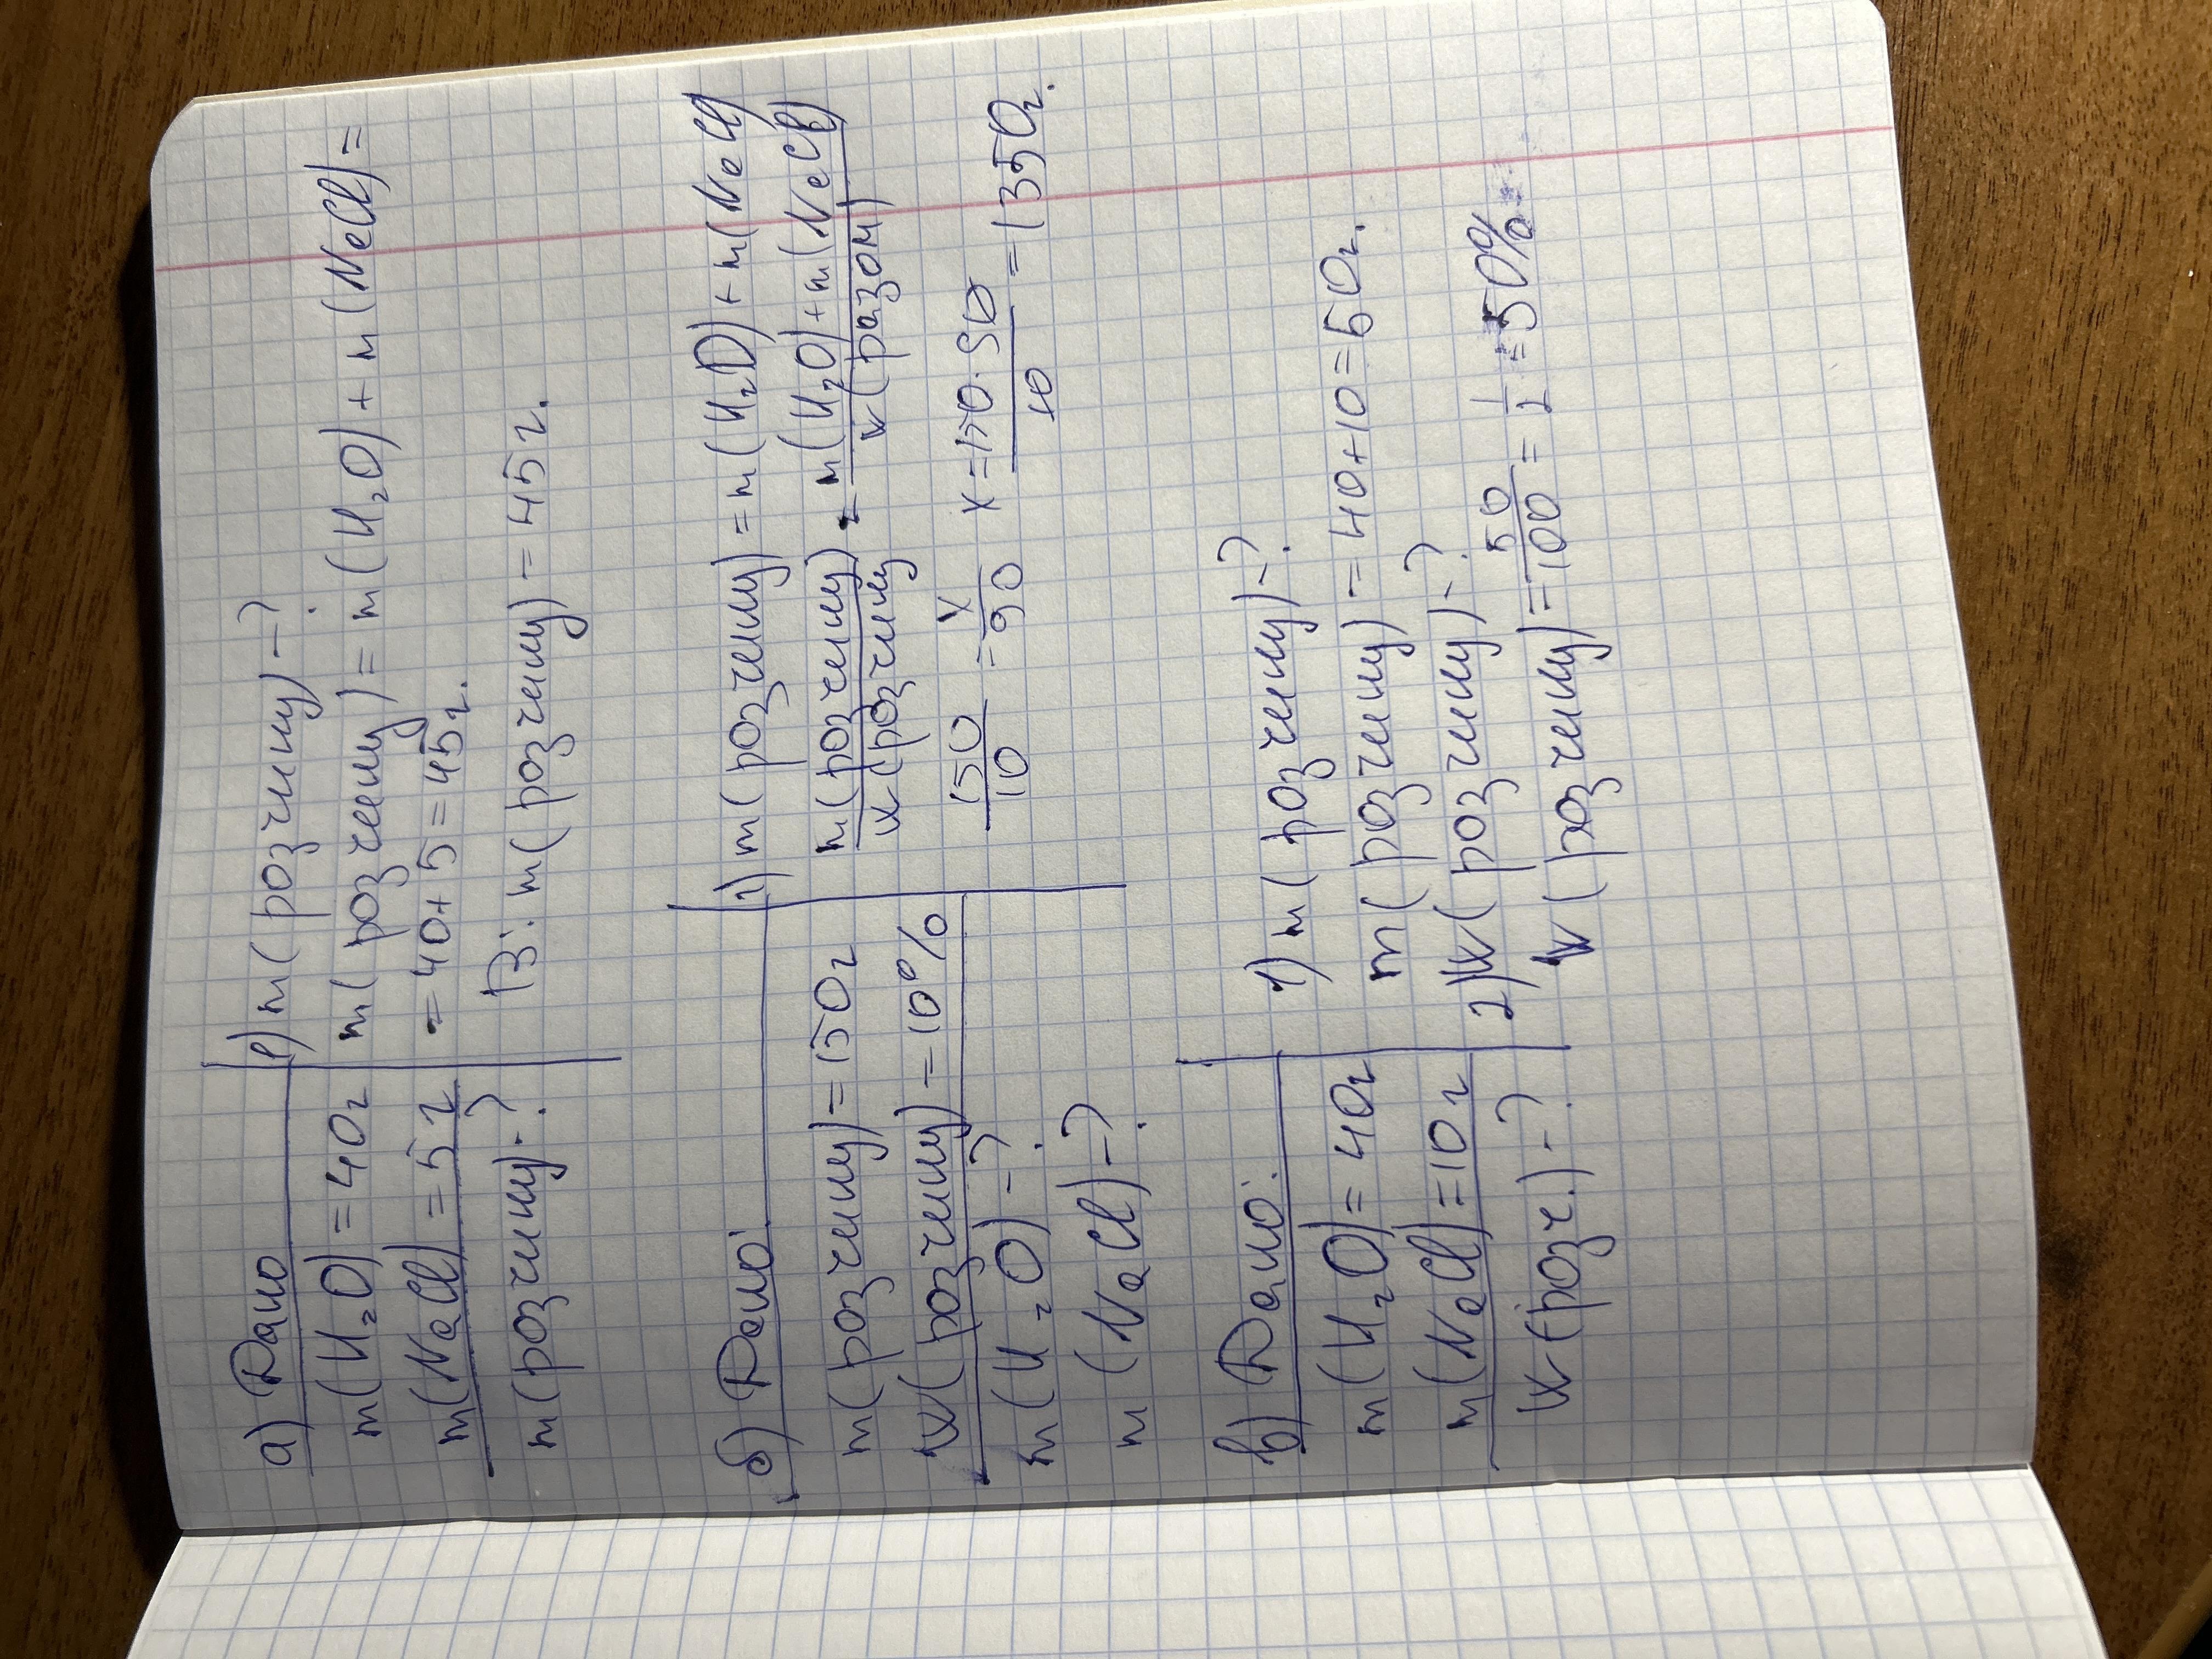 а) Дано
m(H₂O) = 40г
m(NaCl) = 5г
m(розчину)-?
1) m(розчину) -?
m(розчину) = m(H₂O) + m(NaCl) =
= 40+5=45г.
В: m(розчину) = 45г.
б) Дано:
m(розчину) = 150г
w(розчину) = 10%
m(H₂O) -?
m(NaCl) -?
1) m(розчину) = m(H₂O) + m(NaCl)
m(розчину)/w(розчину) = m(H₂O)+m(NaCl)/w(разом)
150/10 = x/90 x = 150·90/10 = 1350г.
в) Дано:
m(H₂O) = 40г
m(NaCl) = 10г
w(розч.) -?
1) m(розчину) -?
m(розчину) = 40+10=50г.
2) w(розчину) -?
w(розчину) = 50/100 = 1/2 = 50%.